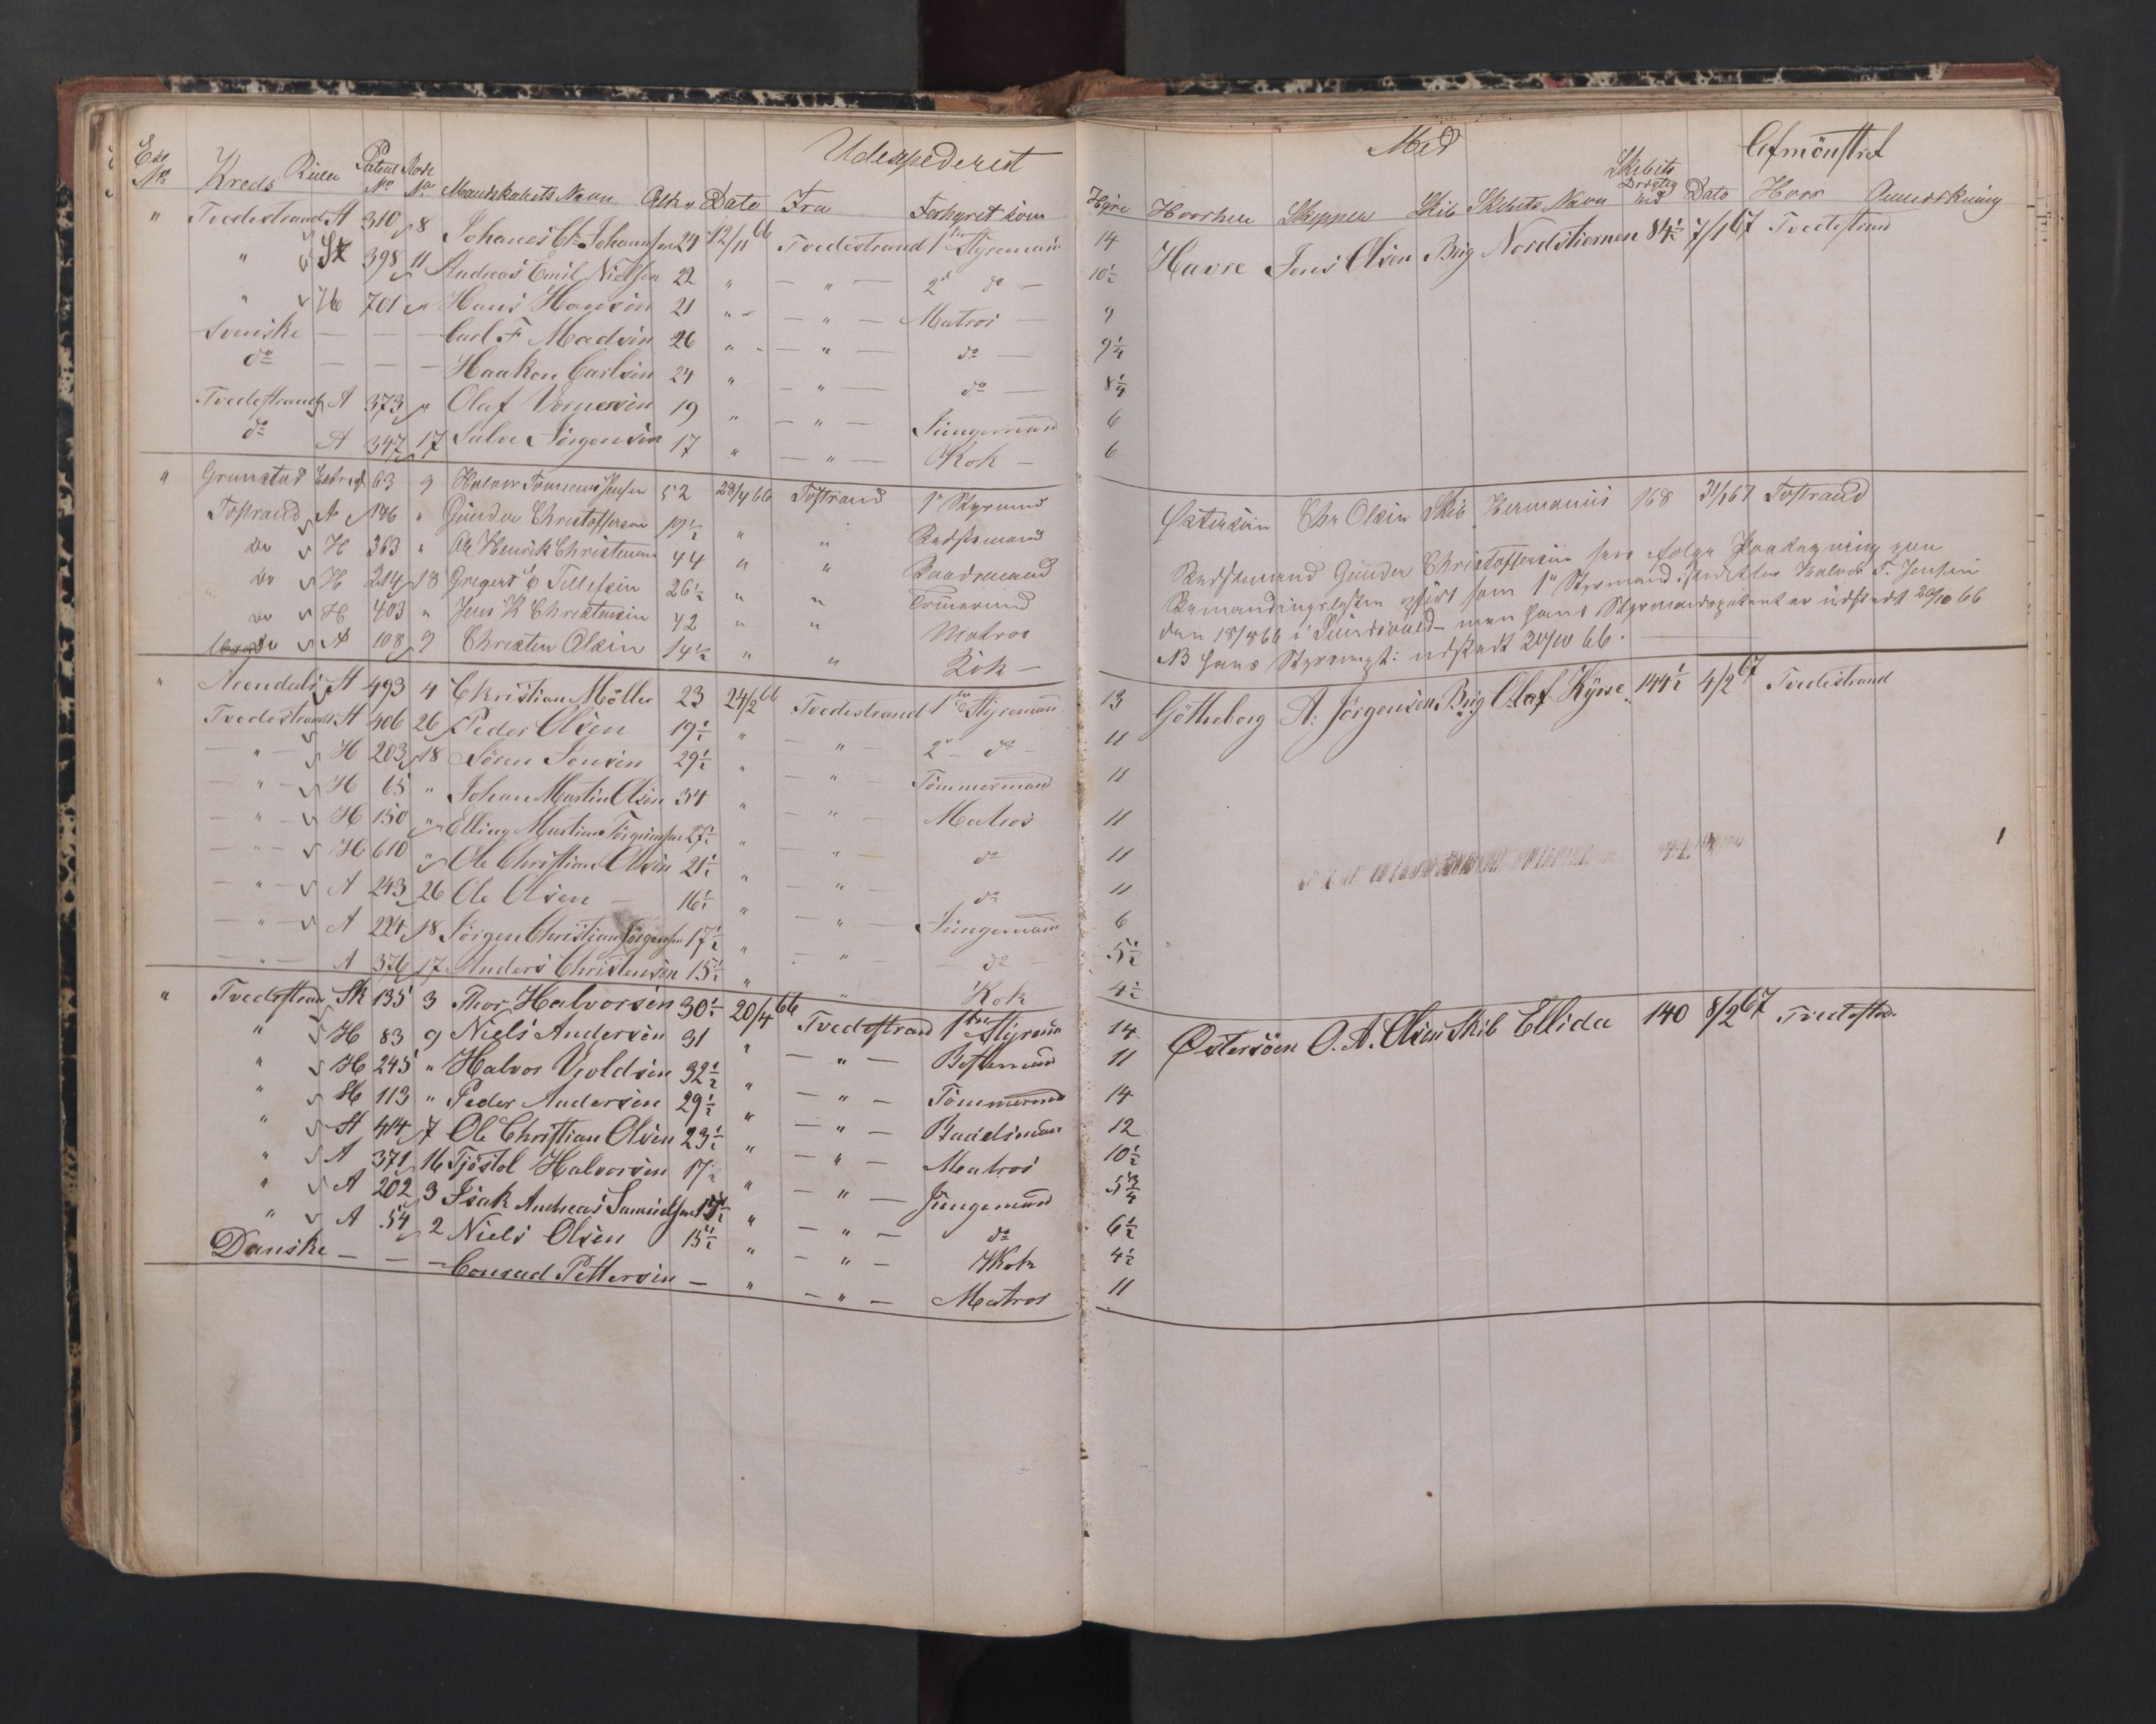 Udexpederet
Exp No Kreds Rulle Patent No Rode No Mandskabets Navn Alder Dato Fra Forhyret som
" Tvedestrand A 310 8 Johanes Chr Johannsen 24 12/11 66 Tvedestrand 1ste Styrmand
" St 398 11 Andreas Emil Nielsen 22 " — " — 2d do —
" H 701 " Hans Hansen 21 " — " — Matros —
Svenske — — — Carl F Madsen 26 " — " — do —
do — — — Haakon Carlsen 24 " — " — do —
Tvedestrand A 373 " Olaf Wernersen 19 " — " — Jungmand
do A 347 17 Salve Jörgensen 17 " — " — Kok —
" Grimstad Extract 63 9 Halvor Tommas Jensen 52 28/4 66 Tvstrand 1e Styrmand
Tvstrand A 146 " Gunder Christoffersen 19½ " " Bedstemand
do H 363 " Ole Henrik Christensen 44 " " Baadsmand
do H 214 18 Gregers O Tellefsen 26½ " " Tömermd
do H 403 " Jens K Christensen 42 " " Matros
do A 108 9 Christen Olsen 14½ " " Kok —
" Arendals A 493 4 Christian Möller 23 24/2 66 Tvedestrand 1ste Styrmand
Tvedestrands A 406 26 Peder Olsen 19½ " — " — 2d — do —
— " — H 203 18 Sören Jensen 29½ " — " — Tömmermand
— " — H 65 " Johan Martin Olsen 34 " — " — Matros
— " — H 150 " Elling Martinus Jörgensen 27½ " — " — do
— " — H 610 " Ole Christian Olsen 21½ " — " — do
— " — A 243 26 Ole Olsen — 16½ " — " — Jungmand
— " — A 224 18 Jörgen Christian Jörgensen 17½ " — " — do —
— " — A 376 17 Anders Christensen 15½ " " — Kok
" Tvedestrand Sk 135 3 Thor Halvorsen 30½ 20/4 66 Tvedestrand 1ste Styrmd
" H 83 9 Niels Andersen 31 " — " — Bestemand
" H 245 " Halvor Voldsen 32½ " — " — Tömmermd
" H 113 " Peder Andersen 29½ " — " — Baadsmand
" A 414 7 Ole Christian Olsen 23½ " — " — Matros
" A 371 16 Tjöstol Halvorsen 17½ " — " — Jungemand
" A 202 3 Isak Andreas Samuelsen 15½ " — " — do
" A 54 2 Niels Olsen 15½ " — " — Kok
Danske — — — Conrad Pettersen — " — " — Matros
Med Afmönstret
Hyre Hvorhen Skipper Skib Skibets Navn Skibets Drægtighed Dato Hvor Anmerkning
14 Havre Jens Olsen Brig Nordstiernen 84½ 7/1 67 Tvedestrand
10½
9
9¼
8¼
6
6
Östersöen Chr Olsen Skib Hermanus 168 31/1 67 Tvstrand
Bedstemand Gunder Christoffersen
Bemandingslisten som 1e Styrmand Halvor T. Jensen
den 18/8 66 i Sundsvald — men hans Styrmandspatent er udstedt 20/10 66
NB hans udstedt 20/10 66.
13 Götheborg A: Jörgensen Brig Olaf Kyrre 144½ 4/2 67 Tvedestrand
11
11
11
11
11
6
5½
4½
14 Östersöen O. A. Olsen Skib Ellida 140 8/2 67 Tvedestrd.
11
14
12
10½
5¾
6½
4½
11